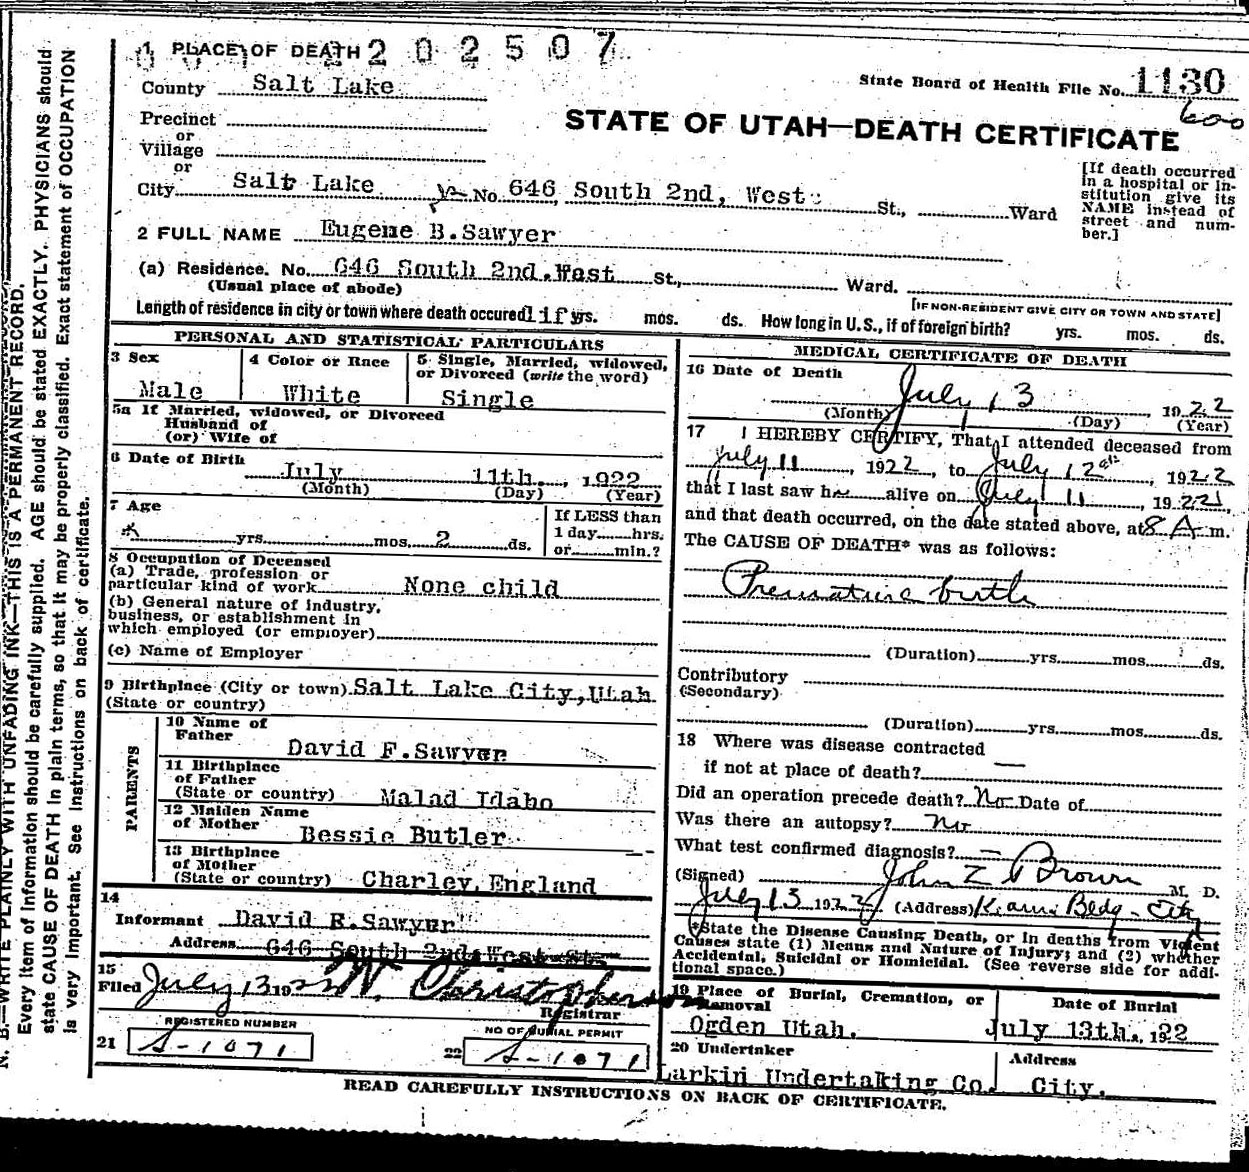 1 PLACE OF DEATH 2 0 2 5 0 7
County Salt Lake
State Board of Health File No. 1130
600
Precinct
or
Village
or
STATE OF UTAH—DEATH CERTIFICATE
City Salt Lake No. 646 South 2nd, West St., Ward
[If death occurred in a hospital or institution give its NAME instead of street and number.]
2 FULL NAME Eugene B.Sawyer
(a) Residence. No. 646 South 2nd.West St., Ward.
(Usual place of abode)
[IF NON-RESIDENT GIVE CITY OR TOWN AND STATE]
Length of residence in city or town where death occured life yrs. mos. ds. How long in U.S., if of foreign birth? yrs. mos. ds.
PERSONAL AND STATISTICAL PARTICULARS
3 Sex
Male
4 Color or Race
White
5 Single, Married, widowed,
or Divorced (write the word)
Single
5a If Married, widowed, or Divorced
Husband of
(or) Wife of
6 Date of Birth July 11th., 1922
(Month) (Day) (Year)
7 Age
yrs. mos. 2 ds.
If LESS than
1 day hrs.
or min.?
8 Occupation of Deceased
(a) Trade, profession or
particular kind of work None child
(b) General nature of industry,
business, or establishment in
which employed (or employer)
(c) Name of Employer
9 Birthplace (City or town) Salt Lake City,Utah
(State or country)
PARENTS
10 Name of
Father David F.Sawyer
11 Birthplace
of Father
(State or country) Malad Idaho
12 Maiden Name
of Mother Bessie Butler
13 Birthplace
of Mother
(State or country) Charley,England
14
Informant David R.Sawyer
Address 646 South 2nd West St.
15
Filed July 13 1922 W. Christopherson
Registrar
REGISTERED NUMBER
21 S-1071
NO OF BURIAL PERMIT
22 S-1071
MEDICAL CERTIFICATE OF DEATH
16 Date of Death July 13 1922
(Month) (Day) (Year)
17 I HEREBY CERTIFY, That I attended deceased from
July 11, 1922, to July 12th, 1922
that I last saw h alive on July 11, 1922,
and that death occurred, on the date stated above, at 8 A m.
The CAUSE OF DEATH* was as follows:
Premature birth
(Duration) yrs. mos. ds.
Contributory
(Secondary)
(Duration) yrs. mos. ds.
18 Where was disease contracted
if not at place of death? —
Did an operation precede death? No Date of
Was there an autopsy? No
What test confirmed diagnosis? —
(Signed) John Z Brown M. D.
July 13 1922 (Address) Kearns Bldg - City
*State the Disease Causing Death, or in deaths from Violent
Causes state (1) Means and Nature of Injury; and (2) whether
Accidental, Suicidal or Homicidal. (See reverse side for additional space.)
19 Place of Burial, Cremation, or
Removal
Ogden Utah.
Date of Burial
July 13th., 1922
20 Undertaker
Larkin Undertaking Co.
Address
City.
READ CAREFULLY INSTRUCTIONS ON BACK OF CERTIFICATE.
N. B.—WRITE PLAINLY WITH UNFADING INK—THIS IS A PERMANENT RECORD.
Every item of information should be carefully supplied. AGE should be stated EXACTLY. PHYSICIANS should
state CAUSE OF DEATH in plain terms, so that it may be properly classified. Exact statement of OCCUPATION
is very important. See instructions on back of certificate.